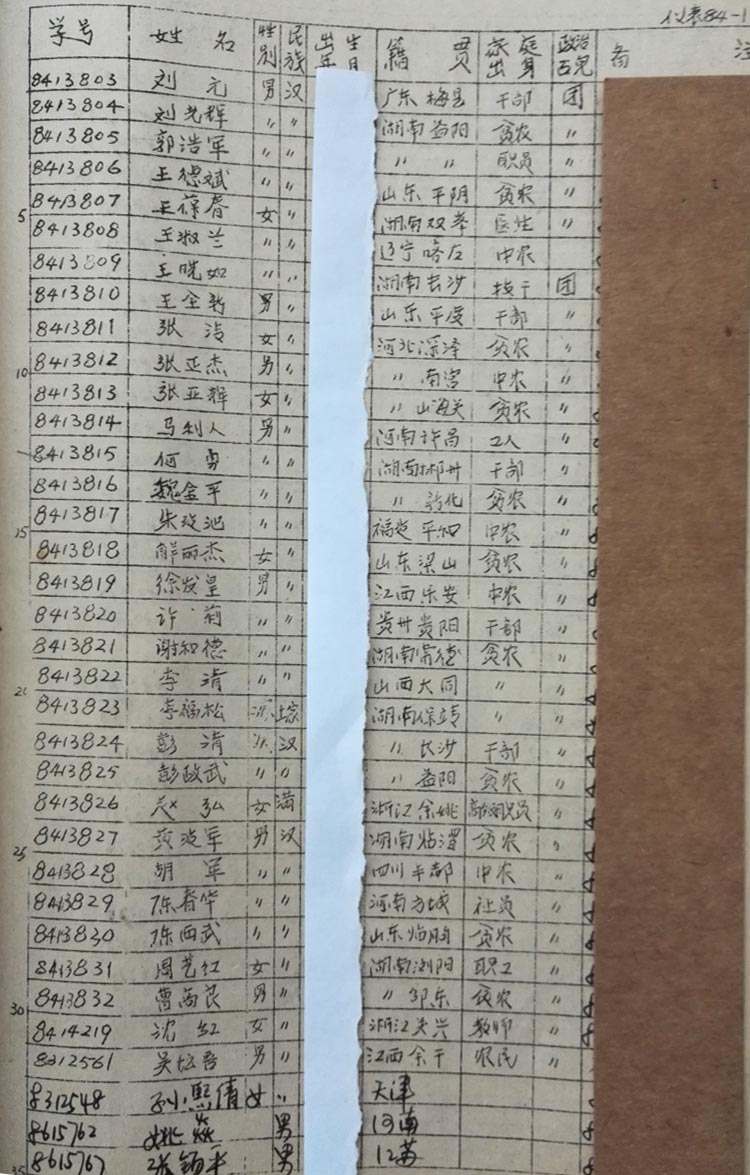 仪表84-1
学号 姓名 性别 民族 出生年月 籍贯 家庭出身 政治面貌 备注
8413803 刘元 男 汉 广东梅县 干部 团
8413804 刘光辉 〃 〃 湖南益阳 贫农 〃
8413805 郭浩军 〃 〃 〃 〃 职员 〃
8413806 王德斌 〃 〃 山东平阴 贫农 〃
5 8413807 王葆春 女 〃 湖南双峰 医生 〃
8413808 王淑兰 〃 〃 辽宁喀左 中农
8413809 王晓如 〃 〃 湖南长沙 技干 团
8413810 王全新 男 〃 山东平度 干部 〃
8413811 张洁 女 〃 河北深泽 贫农 〃
10 8413812 张亚杰 男 〃 〃 南宫 中农 〃
8413813 张亚辉 女 〃 〃 山海关 贫农 〃
8413814 马利人 男 〃 河南许昌 工人 〃
8413815 何勇 〃 〃 湖南郴州 干部 〃
8413816 魏金平 〃 〃 〃 新化 贫农 〃
15 8413817 朱 池 〃 〃 福建平和 中农 〃
8413818 解丽杰 女 〃 山东梁山 贫农 〃
8413819 徐发皇 男 〃 江西乐安 中农 〃
8413820 许菊 〃 〃 贵州贵阳 干部 〃
8413821 谢知德 〃 〃 湖南常德 贫农 〃
20 8413822 李清 〃 〃 山西大同 〃 〃
8413823 李福松 湖南保靖 〃 〃
8413824 彭清 汉 〃 长沙 干部 〃
8413825 彭政武 〃 〃 〃 益阳 贫农 〃
8413826 赵弘 女 满 浙江余姚 职员 〃
25 8413827 黄波军 男 汉 湖南临澧 贫农 〃
8413828 胡军 〃 〃 四川丰都 中农 〃
8413829 陈春华 〃 〃 河南方城 社员 〃
8413830 陈西武 〃 〃 山东临朐 贫农 〃
8413831 周艺红 女 〃 湖南浏阳 职工 〃
30 8413832 曹尚良 男 〃 〃 邵东 贫农 〃
8414219 沈红 女 〃 浙江吴兴 教师 〃
8312561 吴坛吾 男 〃 江西余干 农民 〃
8312548 孙熙倩 女 〃 天津
8615762 姚焱 男 河南
35 8615767 张锡平 男 江苏